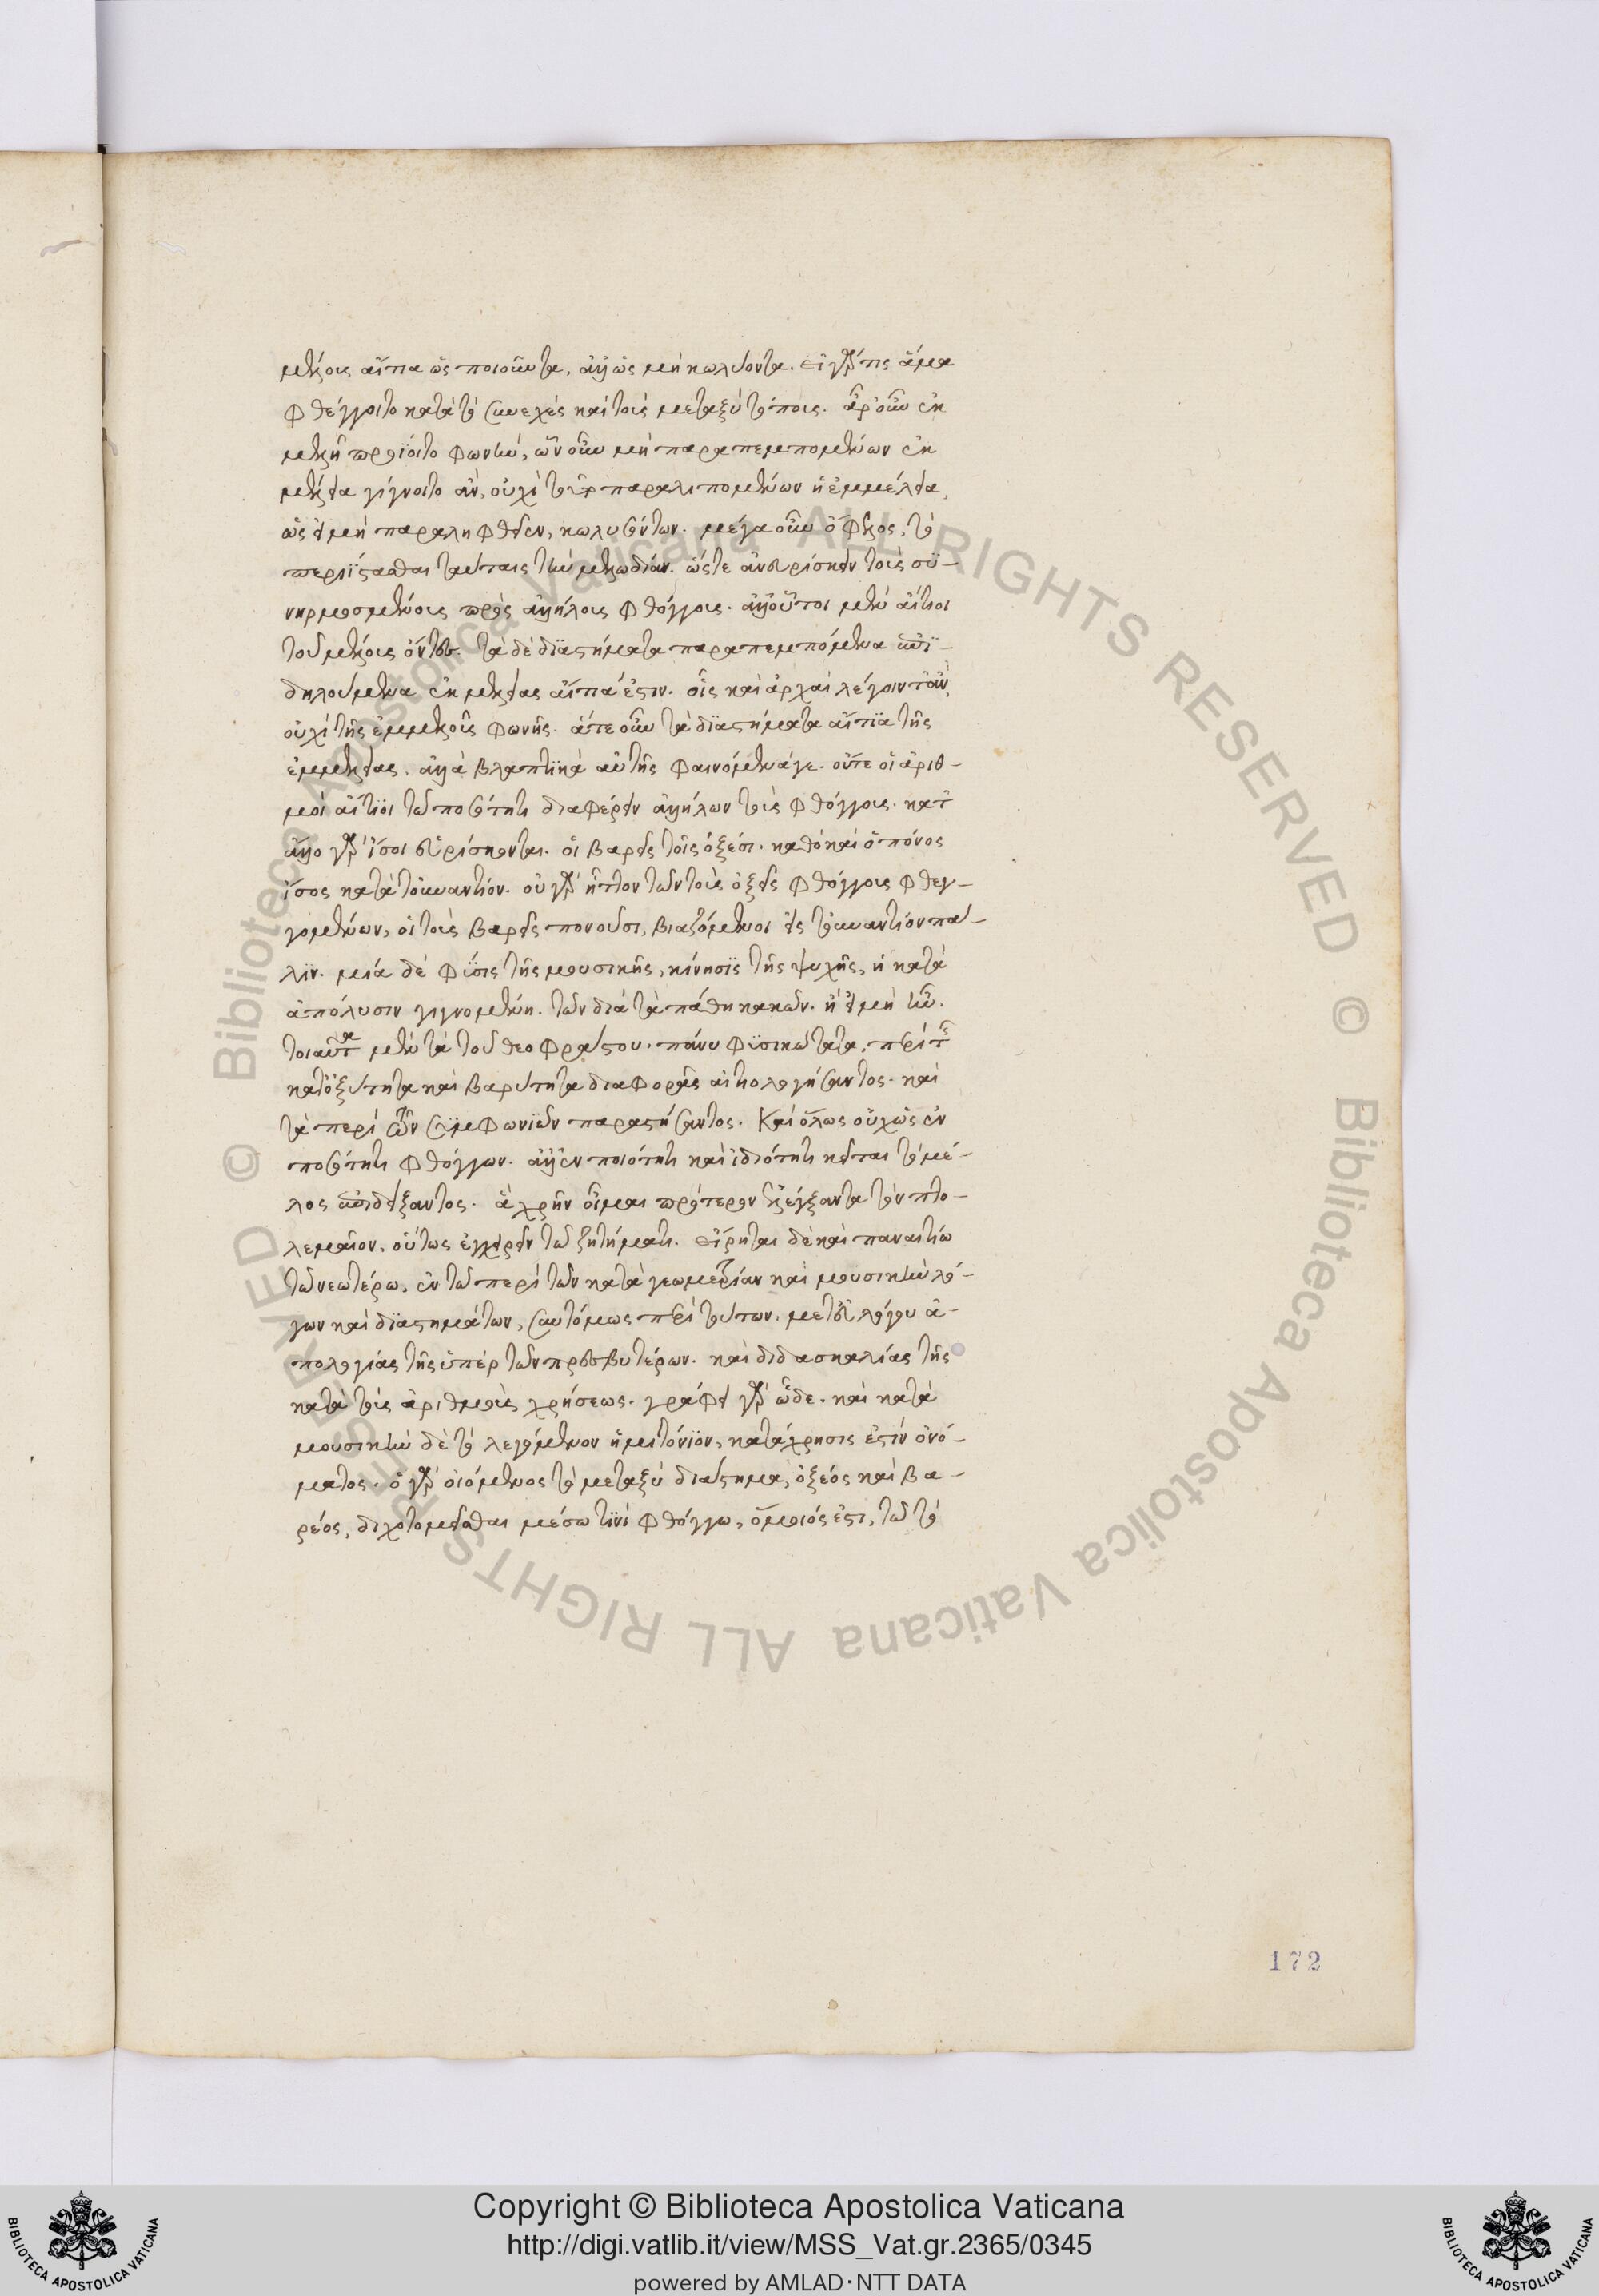 μελους αἴτια ὡς ποιοῦντα, ἀλλ' ὡς μὴ κωλύοντα. εἰ γάρ τις ἅμα
φθέγγοιτο κατὰ τὸ συνεχὲς καὶ τοὺς μεταξὺ τόπους. ἆρ' οὖν ἐκ
μελῆ προίοιτο φωνήν, ὧν οὖν μὴ παραπεμπομένων ἐκ
μέλεια γίγνοιτο ἄν, οὐχὶ τούτων παραλιπομένων ἡ ἐμμέλεια,
ὡς εἰ μὴ παραληφθεῖεν, κωλυσόντων. μέγα οὖν ὄφελος, τὸ
περιΐστασθαι ταύταις τὴν μελωδίαν. ὥστε ἀνευρίσκειν τοὺς συ-
νηρμοσμένους πρὸς ἀλλήλους φθόγγους. ἀλλ' οὗτοι μὲν αἴτιοι
τοῦ μέλους ὄντες. τὰ δὲ διαστήματα παραπεμπόμενα ἀπο-
δηλούμενα ἐκμελείας αἴτιά ἐστιν. ἧς καὶ ἀρχαὶ λέγοιντ' ἄν,
οὐχὶ τῆς ἐμμελοῦς φωνῆς. ἅτε οὖν τὰ διαστήματα αἴτια τῆς
ἐμμελείας. ἀλλὰ βλαπτικὰ αὐτῆς φαινόμενά γε. οὔτε οἱ ἀριθ-
μοὶ αἴτιοι τῷ ποσότητι διαφέρειν ἀλλήλων τοὺς φθόγγους. κατ'
ἄλλο γὰρ ἴσοι εὑρίσκονται. οἱ βαρεῖς τοῖς ὀξέσι. καθὸ καὶ ὁ πόνος
ἴσος κατὰ τοὐναντίον. οὐ γὰρ ἧττον τῶν τοὺς ὀξεῖς φθόγγους φθεγ-
γομένων, οἱ τοὺς βαρεῖς πονοῦσι, βιαζόμενοι εἰς τοὐναντίον πά-
λιν. μία δὲ φύσις τῆς μουσικῆς, κίνησις τῆς ψυχῆς, ἡ κατὰ
ἀπόλυσιν γιγνομένη. τῶν διὰ τὰ πάθη κακῶν. ἢ εἰ μὴ ἦν.
τοιαῦτα μὲν τὰ τοῦ θεοφράστου. πάνυ φυσικώτατα, περὶ τῆς
κατ' ὀξύτητα καὶ βαρύτητα διαφορᾶς αἰτιολογήσαντος. καὶ
τὰ περὶ τῶν συμφωνιῶν παραστήσαντος. Καὶ ὅλως οὐχ ὡς ἐν
ποσότητι φθόγγων. ἀλλ' ἐν ποιότητι καὶ ἰδιότητι κεῖται τὸ μέ-
λος ἀποδείξαντος. ἃ χρῆν οἶμαι πρότερον ἐλέγξαντα τὸν πτο-
λεμαῖον, οὕτως ἐγχειρεῖν τῷ ζητήματι. εἴρηται δὲ καὶ παναιτίω
τῷ νεωτέρω, ἐν τῷ περὶ τῶν κατὰ γεωμετρίαν καὶ μουσικὴν λό-
γων καὶ διαστημάτων, συντόμως περὶ τούτων. μετὰ λόγου ἀ-
πολογίας τῆς ὑπὲρ τῶν πρεσβυτέρων. καὶ διδασκαλίας τῆς
κατὰ τοὺς ἀριθμοὺς χρήσεως. γράφει γὰρ ὧδε. καὶ κατὰ
μουσικὴν δὲ τὸ λεγόμενον ἡμιτόνιον, κατάχρησις ἐστὶν ὀνό-
ματος. ὁ γὰρ οἰόμενος τὸ μεταξὺ διάστημα, ὀξέος καὶ βα-
ρέος, διχοτομεῖσθαι μέσω τινὶ φθόγγω, ὅμοιός ἐστι, τῷ τὸ
172
© Biblioteca Apostolica Vaticana ALL RIGHTS RESERVED © Biblioteca Apostolica Vaticana ALL RIGHTS RESERVED
Copyright © Biblioteca Apostolica Vaticana
http://digi.vatlib.it/view/MSS_Vat.gr.2365/0345
powered by AMLAD·NTT DATA
BIBLIOTECA APOSTOLICA VATICANA
BIBLIOTECA APOSTOLICA VATICANA